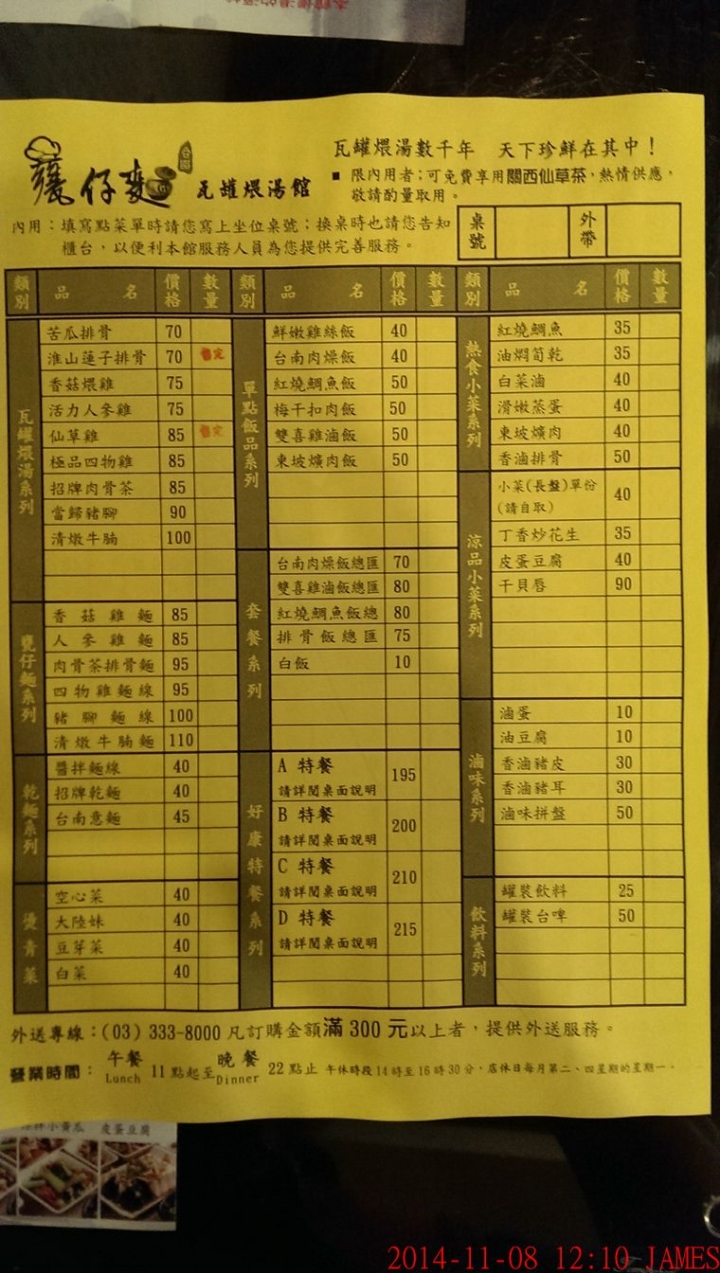 甕仔麵 瓦罐煨湯館
瓦罐煨湯數千年 天下珍鮮在其中！
■ 限內用者；可免費享用關西仙草茶，熱情供應，
敬請酌量取用。
內用：填寫點菜單時請您寫上坐位桌號；換桌時也請您告知
櫃台，以便利本館服務人員為您提供完善服務。
桌號 外帶
類別 品名 價格 數量
瓦罐煨湯系列
苦瓜排骨 70
淮山蓮子排骨 70 暫定
香菇煨雞 75
活力人參雞 75
仙草雞 85 暫定
極品四物雞 85
招牌肉骨茶 85
當歸豬腳 90
清燉牛腩 100
甕仔麵系列
香菇雞麵 85
人參雞麵 85
肉骨茶排骨麵 95
四物雞麵線 95
豬腳麵線 100
清燉牛腩麵 110
乾麵系列
醬拌麵線 40
招牌乾麵 40
台南意麵 45
燙青菜
空心菜 40
大陸妹 40
豆芽菜 40
白菜 40
類別 品名 價格 數量
單點飯品系列
鮮嫩雞絲飯 40
台南肉燥飯 40
紅燒鯛魚飯 50
梅干扣肉飯 50
雙喜雞滷飯 50
東坡爌肉飯 50
套餐系列
台南肉燥飯總匯 70
雙喜雞滷飯總匯 80
紅燒鯛魚飯總 80
排骨飯總匯 75
白飯 10
好康特餐系列
A 特餐 195
請詳閱桌面說明
B 特餐 200
請詳閱桌面說明
C 特餐 210
請詳閱桌面說明
D 特餐 215
請詳閱桌面說明
類別 品名 價格 數量
熱食小菜系列
紅燒鯛魚 35
油燜筍乾 35
白菜滷 40
滑嫩蒸蛋 40
東坡爌肉 40
香滷排骨 50
涼品小菜系列
小菜(長盤)單份 40
(請自取)
丁香炒花生 35
皮蛋豆腐 40
干貝唇 90
滷味系列
滷蛋 10
油豆腐 10
香滷豬皮 30
香滷豬耳 30
滷味拼盤 50
飲料系列
罐裝飲料 25
罐裝台啤 50
外送專線：(03) 333-8000 凡訂購金額滿 300 元以上者，提供外送服務。
營業時間： 午餐 Lunch 11 點起至 晚餐 Dinner 22 點止 午休時段 14 時至 16 時 30 分，店休日每月第二、四星期的星期一。
小黃瓜 皮蛋豆腐
2014-11-08 12:10 JAMES